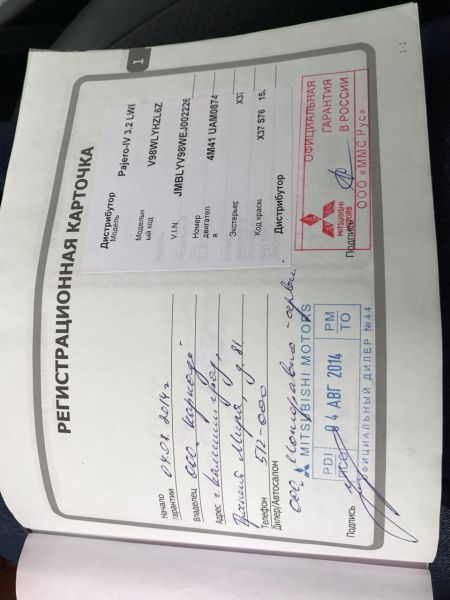 1
РЕГИСТРАЦИОННАЯ КАРТОЧКА
Начало гарантии 04.08.2014г
Владелец ООО
Адрес г. Калининград,
Мира, д. 81
Телефон 512-000
Дилер/Автосалон
ООО
MITSUBISHI MOTORS
PDI PM
ПСО ТО
4 АВГ 2014
ОФИЦИАЛЬНЫЙ ДИЛЕР №44
Подпись
Дистрибутор
Модель Pajero-IV 3,2 LWB
Модельный код V98WLYHZL6Z
V.I.N. JMBLYV98WEJ002226
Номер двигателя 4M41 UAM0874
Экстерьер X37
Код краски X37 S76
Дистрибутор
ОФИЦИАЛЬНАЯ
ГАРАНТИЯ
В РОССИИ
MITSUBISHI
MOTORS
ООО «ММС Рус»
Подпись
1-1